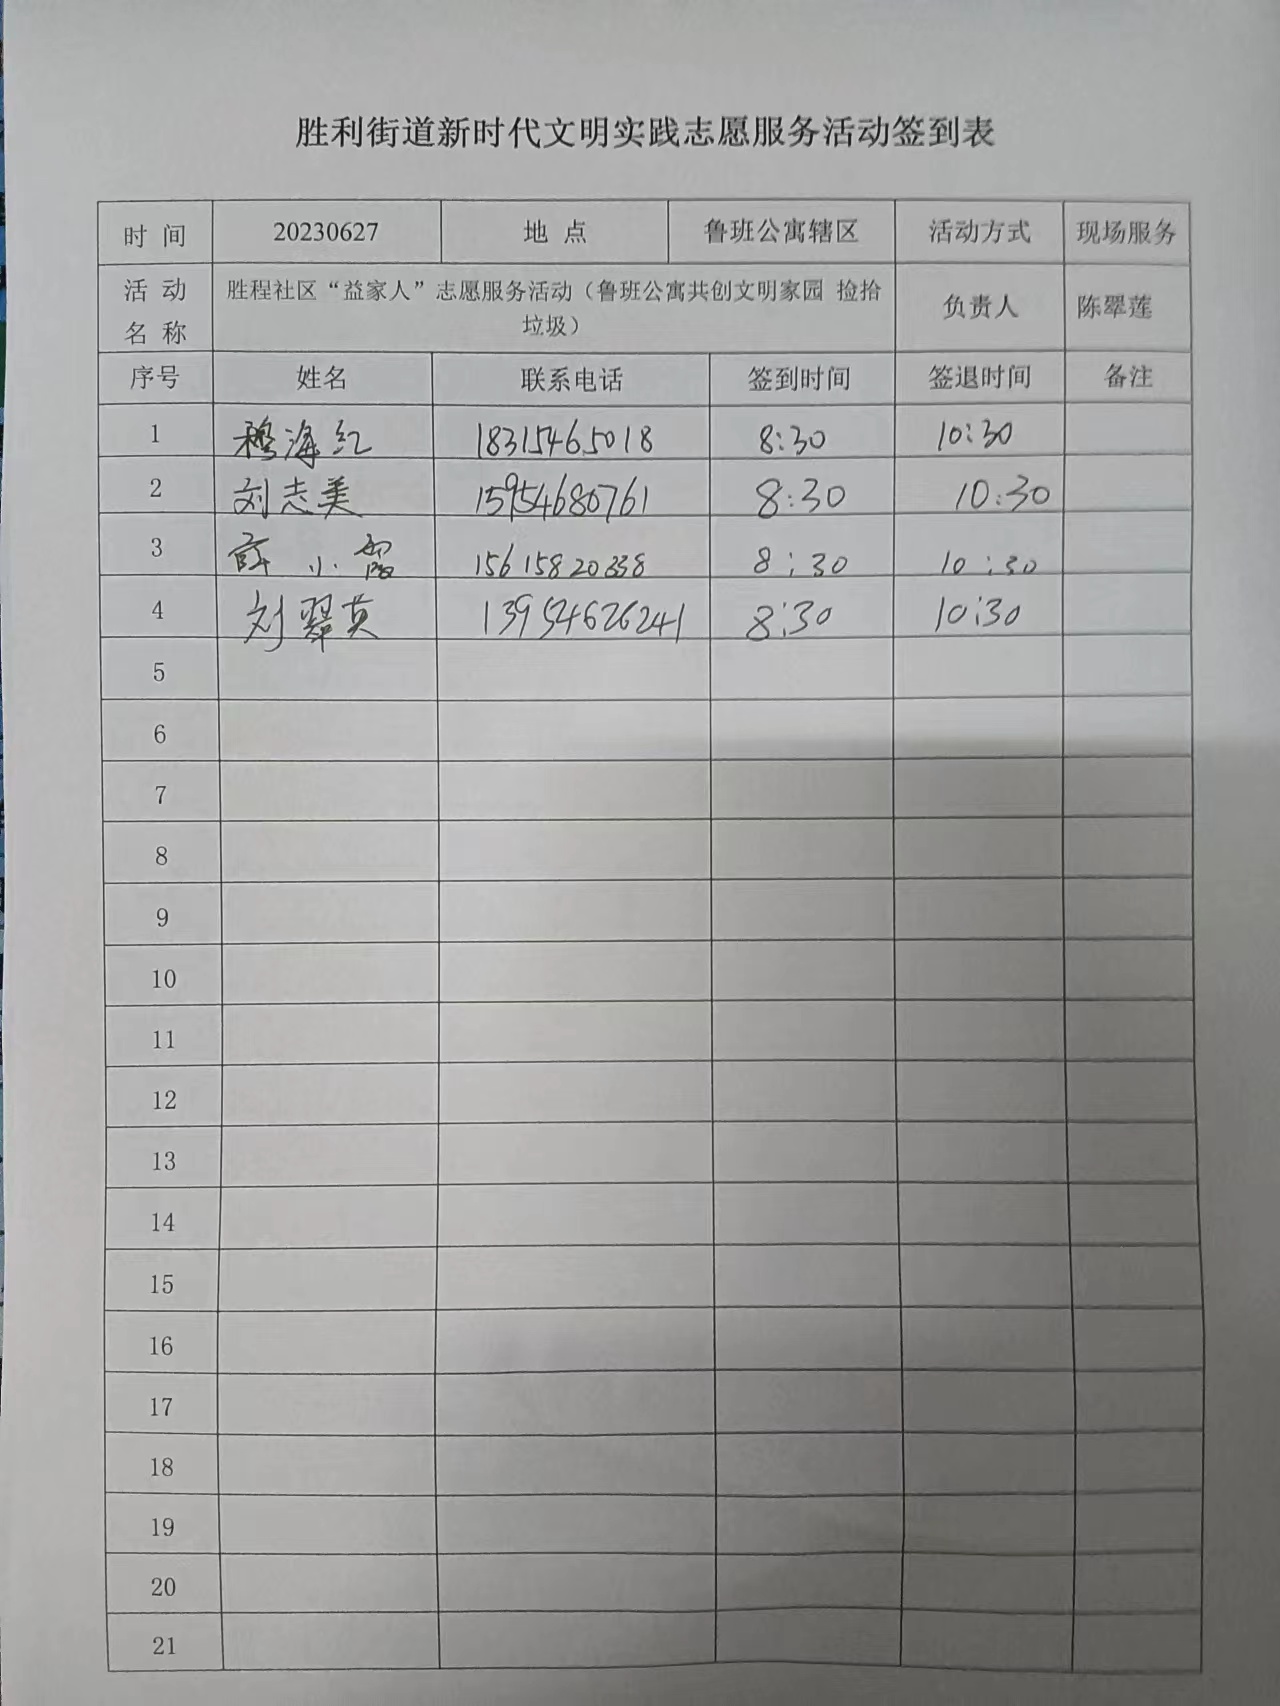 胜利街道新时代文明实践志愿服务活动签到表
时 间 20230627 地 点 鲁班公寓辖区 活动方式 现场服务
活 动 名 称 胜程社区“益家人”志愿服务活动（鲁班公寓共创文明家园 捡拾垃圾） 负责人 陈翠莲
序号 姓名 联系电话 签到时间 签退时间 备注
1 穆海红 18315465018 8:30 10:30
2 刘志美 15954680761 8:30 10:30
3 薛小霞 15615820338 8:30 10:30
4 刘翠英 13954626241 8:30 10:30
5
6
7
8
9
10
11
12
13
14
15
16
17
18
19
20
21